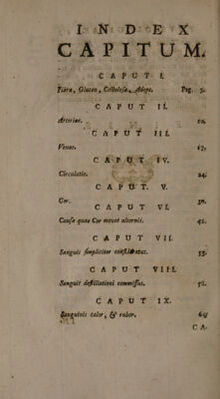 INDEX
CAPITUM.
CAPUT I.
Fibra, Gluten, Cellulosa, Adeps. Pag. 5.
CAPUT II.
Arteriae. 10.
CAPUT III.
Venae. 17.
CAPUT IV.
Circulatio. 24.
CAPUT V.
Cor. 30.
CAPUT VI.
Causa quae Cor movet alternis. 41.
CAPUT VII.
Sanguis simpliciter consideratus. 53.
CAPUT VIII.
Sanguis destillationi commissus. 58.
CAPUT IX.
Sanguinis calor, & rubor. 69
CA-